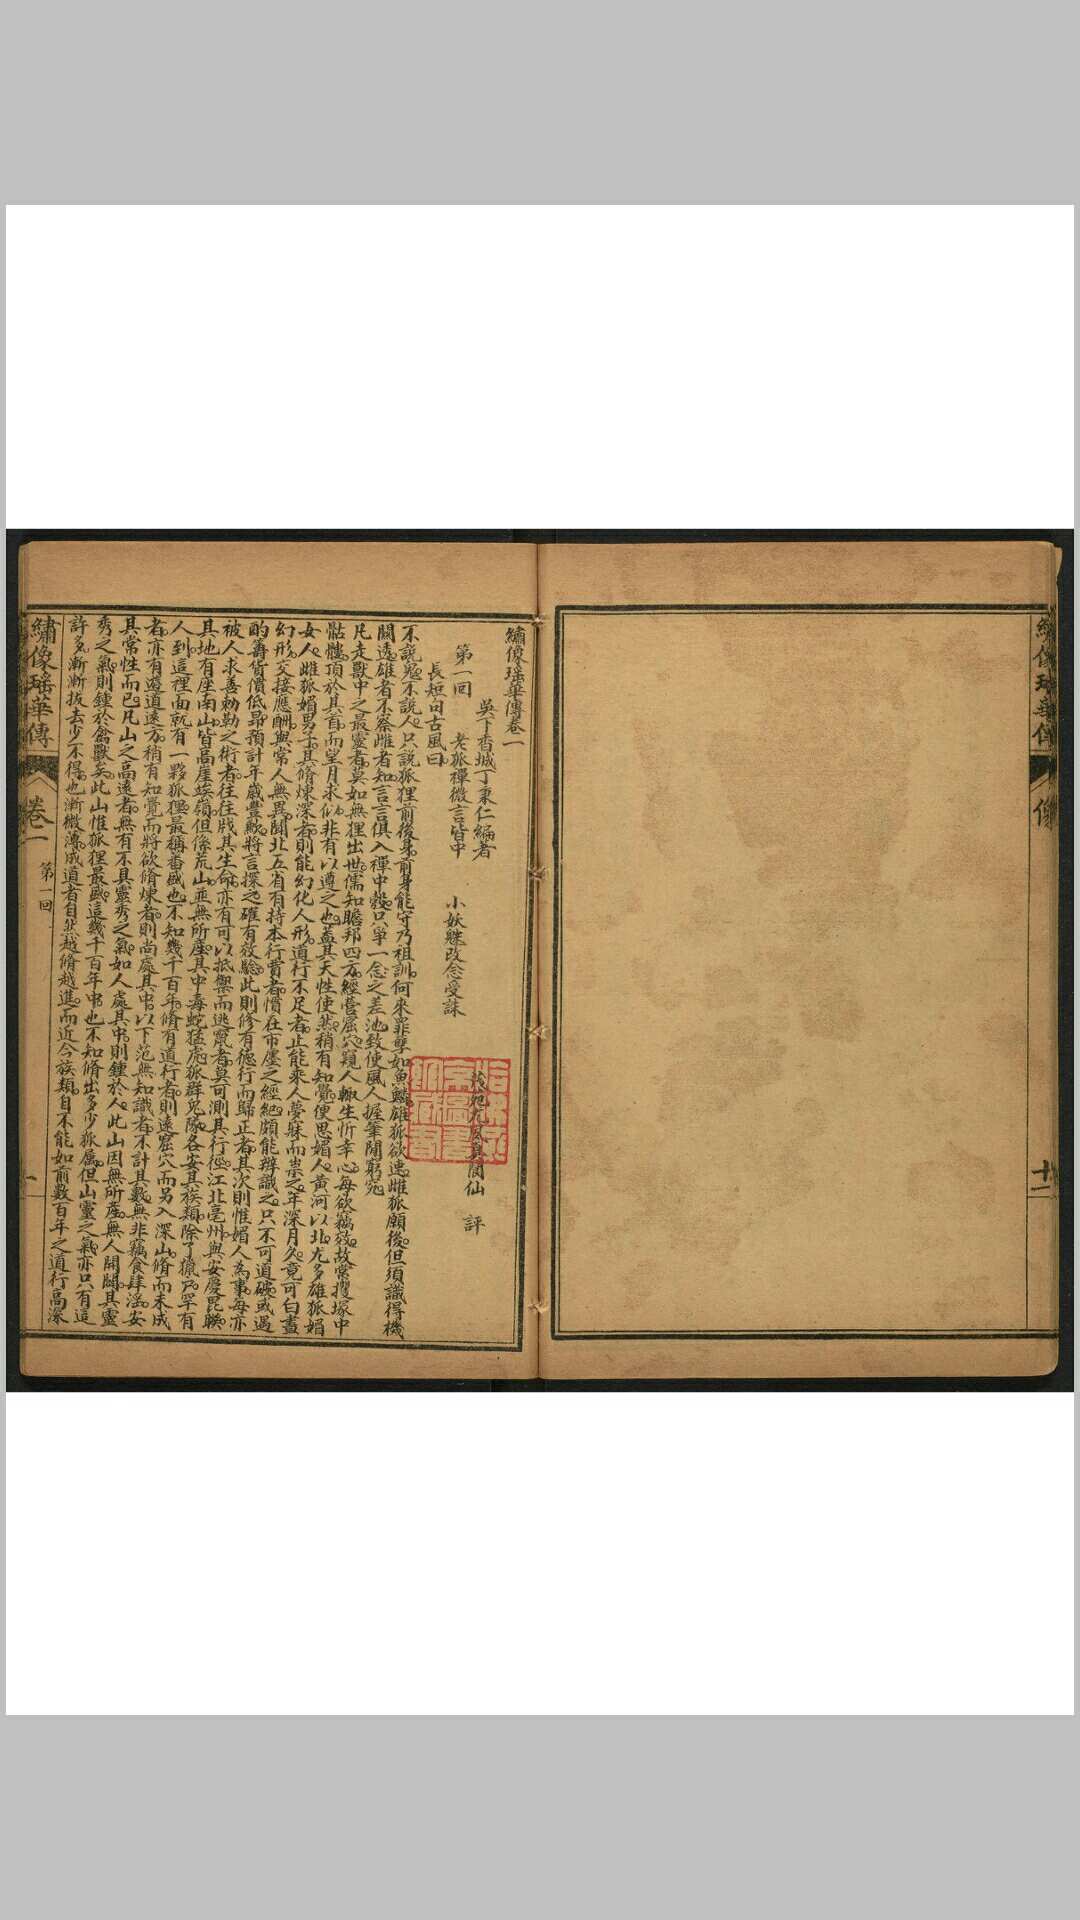 繡像瑤華傳
像
十二
繡像瑤華傳卷一
吳下香城丁秉仁編著
尤夙真閬仙 評
第一回 老狐禪微言皆中 小妖魅改念受誅
長短句古風曰
不說鬼不說人只說狐狸前後身前身能守乃祖訓何來罪孽如魚鱗雄狐欲速雌狐願後但須識得機
關透雄者不察雌者知言言俱入禪中彀只單一念之差池致使風人握筆閒窮究
凡走獸中之最靈者莫如無狸出世儒知瞻邦四方經營窟穴窺人輙生忻幸心每欲竊效故常搜塚中
骷髏頂於其首而望月求似非有以遵之也蓋其天性使然稍有知覺便思媚人黃河以北尤多雄狐媚
女人雌狐媚男子其脩煉深者則能幻化人形道行不足者止能乘人夢寐而祟之年深月久竟可白晝
幻形交接應酬與常人無異閩北五省有持本行費者慣在市廛之經紀頗能辦識之只不可道破或遇
酌籌貨價低昻預計年歲豐歉將言探之確有效驗此則修有德行而歸正者其次則惟媚人為事每亦
被人求善勅勒之術者往往戕其生命亦有可以抵禦而逃竄者莫可測其行徑江北亳州與安慶毘聯
其地有座南山皆高崖埈嶺但係荒山並無所產其中毒蛇猛虎狐群兔隊各安其族類除了獵戶罕有
人到這裡面就有一夥狐狸最稱畨盛也不知幾千百年脩有道行者則遠窟穴而另入深山脩而未成
者亦有遨遊遠方稍有知覺而將欲脩煉者則尚處其中以下范無知識者不計其數無非竊食肆淫安
其常性而已凡山之高遠者無有不具靈秀之氣如人處其中則鍾於人此山因無所產無人開闢其靈
秀之氣則鍾於禽獸矣此山惟狐狸最盛這幾千百年中也不知脩出多少狐屬但山靈之氣亦只有這
許多漸漸拔去少不得也漸微薄成道者自然越脩越進而近今族類自不能如前數百年之道行高深
繡像瑤華傳
卷一
第一回
一